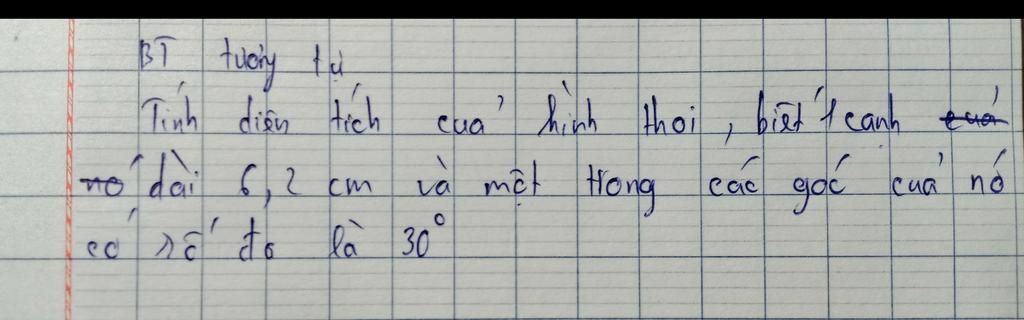 BT tương tự
Tính diện tích của hình thoi, biết 1 cạnh của
nó dài 6,2 cm và một trong các góc của nó
có số đo là 30°